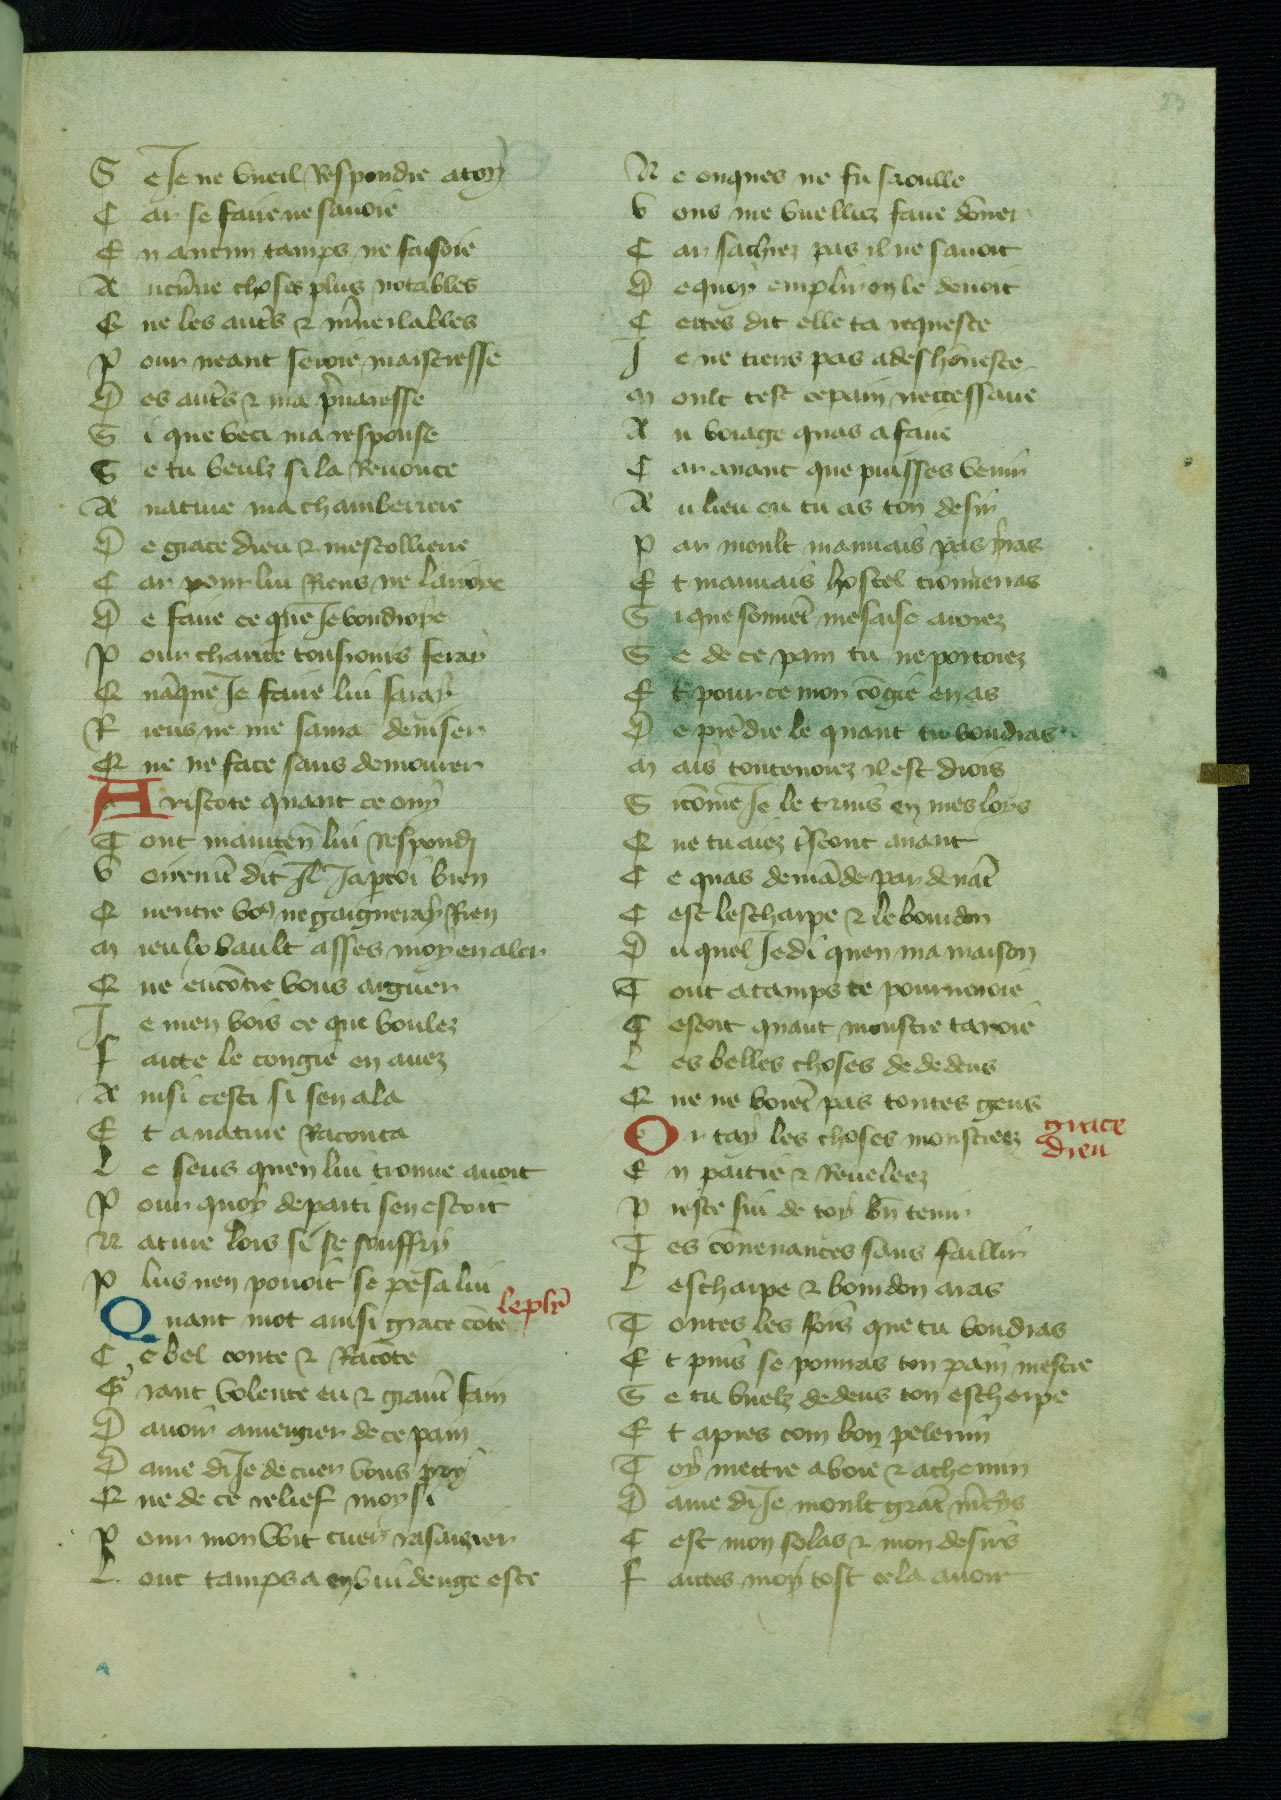 S e Je ne vueil Respondre a toy
C ar se faire ne savoie
E n aucun tamps ne faisoie
A ucune choses plus notables
Q ne les autrs & mueilables
P our neant seroie maistresse
D es autrs & ma prmaresse
S i que veci ma response
S e tu veulz si la Renonce
A nature ma chamberiere
D e grace dieu & mescolliere
C ar pour lui Riens ne lairoye
D e faire ce que Je voudroye
P our charite tousiours feray
Q nāque Je faire lui saray
R iens ne me saura deviser
Q ue ne face sans demourer
A riscote quant ce ouy
T out mainten lui respond
V oirent dit Il Japcoi bien
Q uentre vos ne gaigneray Rien
M ieulx vault asses moy en aler
Q ue encōtre vous arguer
J e men vois ce que voulez
F aicte le congie en avez
A insi cesti si sen ala
E t a nature Raconta
L e sens quen lui trouve avoit
P our quoy departi sen estoit
N ature lors se se souffry
P lus nen povoit se pesa lui
le pelr
Q uant mot ainsi grace cōte
C e bel conte & Racōte
G rant volente eu & grant fain
D avoir amengier de ce pain
D ame di Je de cuer vous pry
Q ue de ce relief moy si
P our mon wit cuer rasaizier
L ont tamps a en vuidenge este
N e onques ne fu saoulle
V ous me vuelliez faire dōner
C ar sachiez pas il ne savoit
D e quoy emplir on le devoit
C ertes dit elle ta requeste
J e ne tiens pas a deshōneste
M oult test ce pain neccessaire
A u voiage quas a faire
C ar avant que puisses venir
A u lieu ou tu as ton desir
P ar moult mauvais pas yras
E t mauvais hostel trouveras
S i que souvet mesaise avoiez
S e de ce pain tu ne portoiez
E t pour ce mon cōgie en as
D e prēdre le quant tu voudras
M ais toutevoiez il est drois
S icōme Je le truis en mes loys
Q ue tu aiez tscout avant
C e quas demāde par devāt
C est lescharpe & le bourdon
D u quel Je di quen ma maison
T out a tamps te pourveroie
C estoit quant moustre taroie
L es belles choses de dedens
Q ue ne voiet pas toutes gens
grace dieu
O r tay les choses moustreez
E n partie & Reveleez
P reste sui de toy bn tenir
T es cōvenances sans faillir
L escharpe & bourdon aras
T outes les fois que tu voudras
E t puis se pourras ton pain mectre
S e tu vuelz dedens ton escherpe
E t apres com bon pelerin
T oy mettre a voie & a chemin
D ame di Je moult grāt mcys
C est mon solas & mon desirs
F aictes moy tost cela avoir